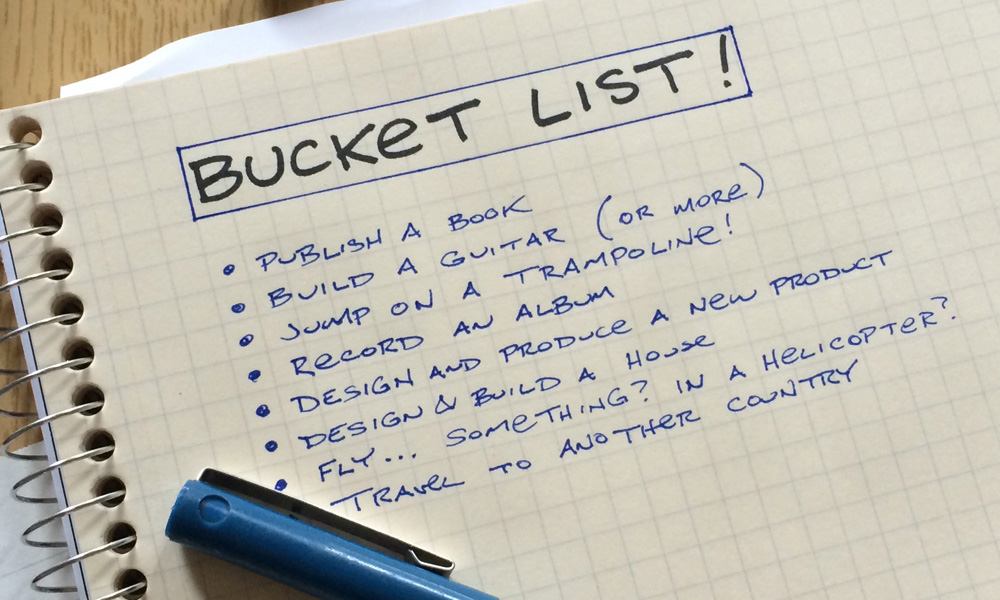 BUCKET LIST!
• PUBLISH A BOOK
• BUILD A GUITAR (OR MORE)
• JUMP ON A TRAMPOLINE!
• RECORD AN ALBUM
• DESIGN AND PRODUCE A NEW PRODUCT
• DESIGN & BUILD A HOUSE
• FLY... SOMETHING? IN A HELICOPTER?
• TRAVEL TO ANOTHER COUNTRY